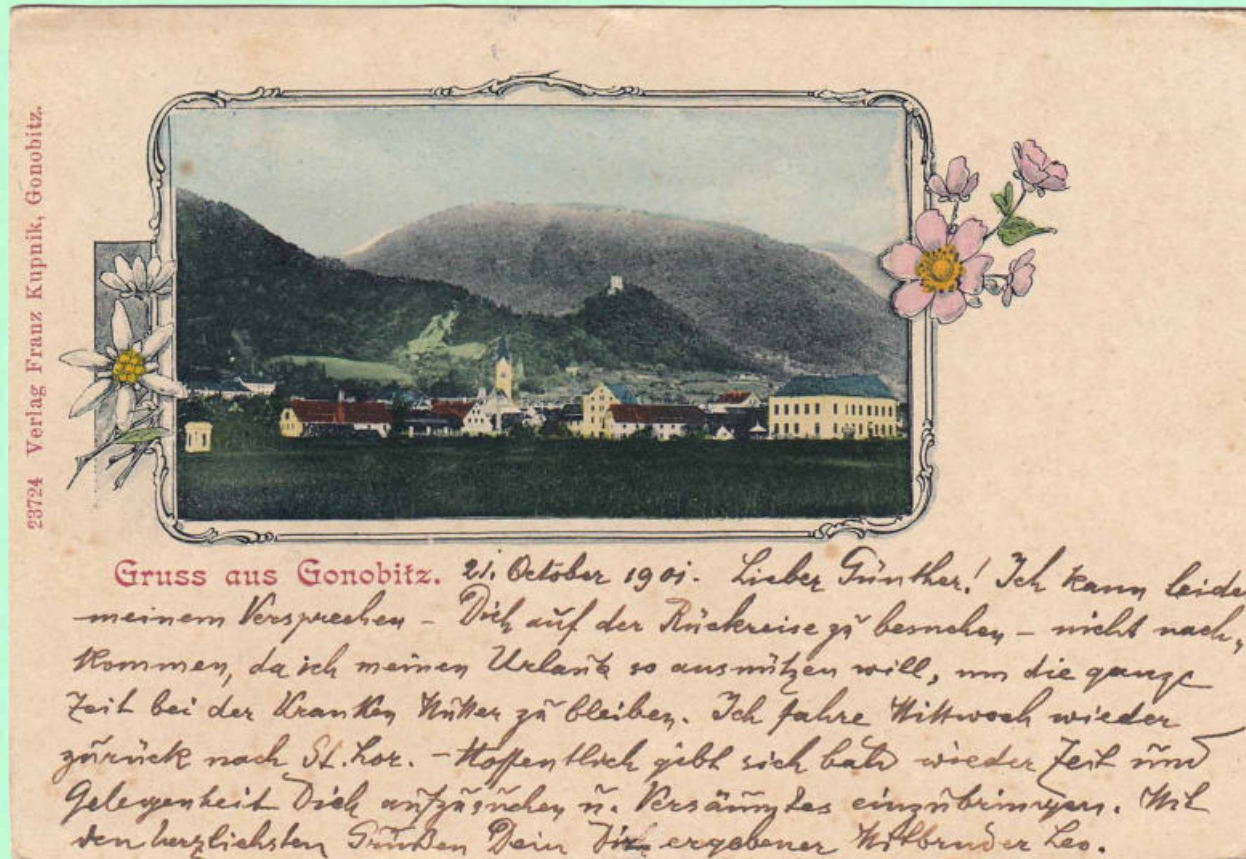 23724 Verlag Franz Kupnik, Gonobitz.
Gruss aus Gonobitz. 21. October 1901. Lieber Günther! Ich kann leider
meinem Versprechen – Dich auf der Rückreise zu besuchen – nicht nach-
kommen, da ich meinen Urlaub so ausnützen will, um die ganze
Zeit bei der kranken Mutter zu bleiben. Ich fahre Mittwoch wieder
zurück nach St. Lor. – Hoffentlich gibt sich bald wieder Zeit und
Gelegenheit Dich aufzusuchen u. Versäumtes einzubringen. Mit
den herzlichsten Grüßen Dein Dir ergebener Mitbruder Leo.